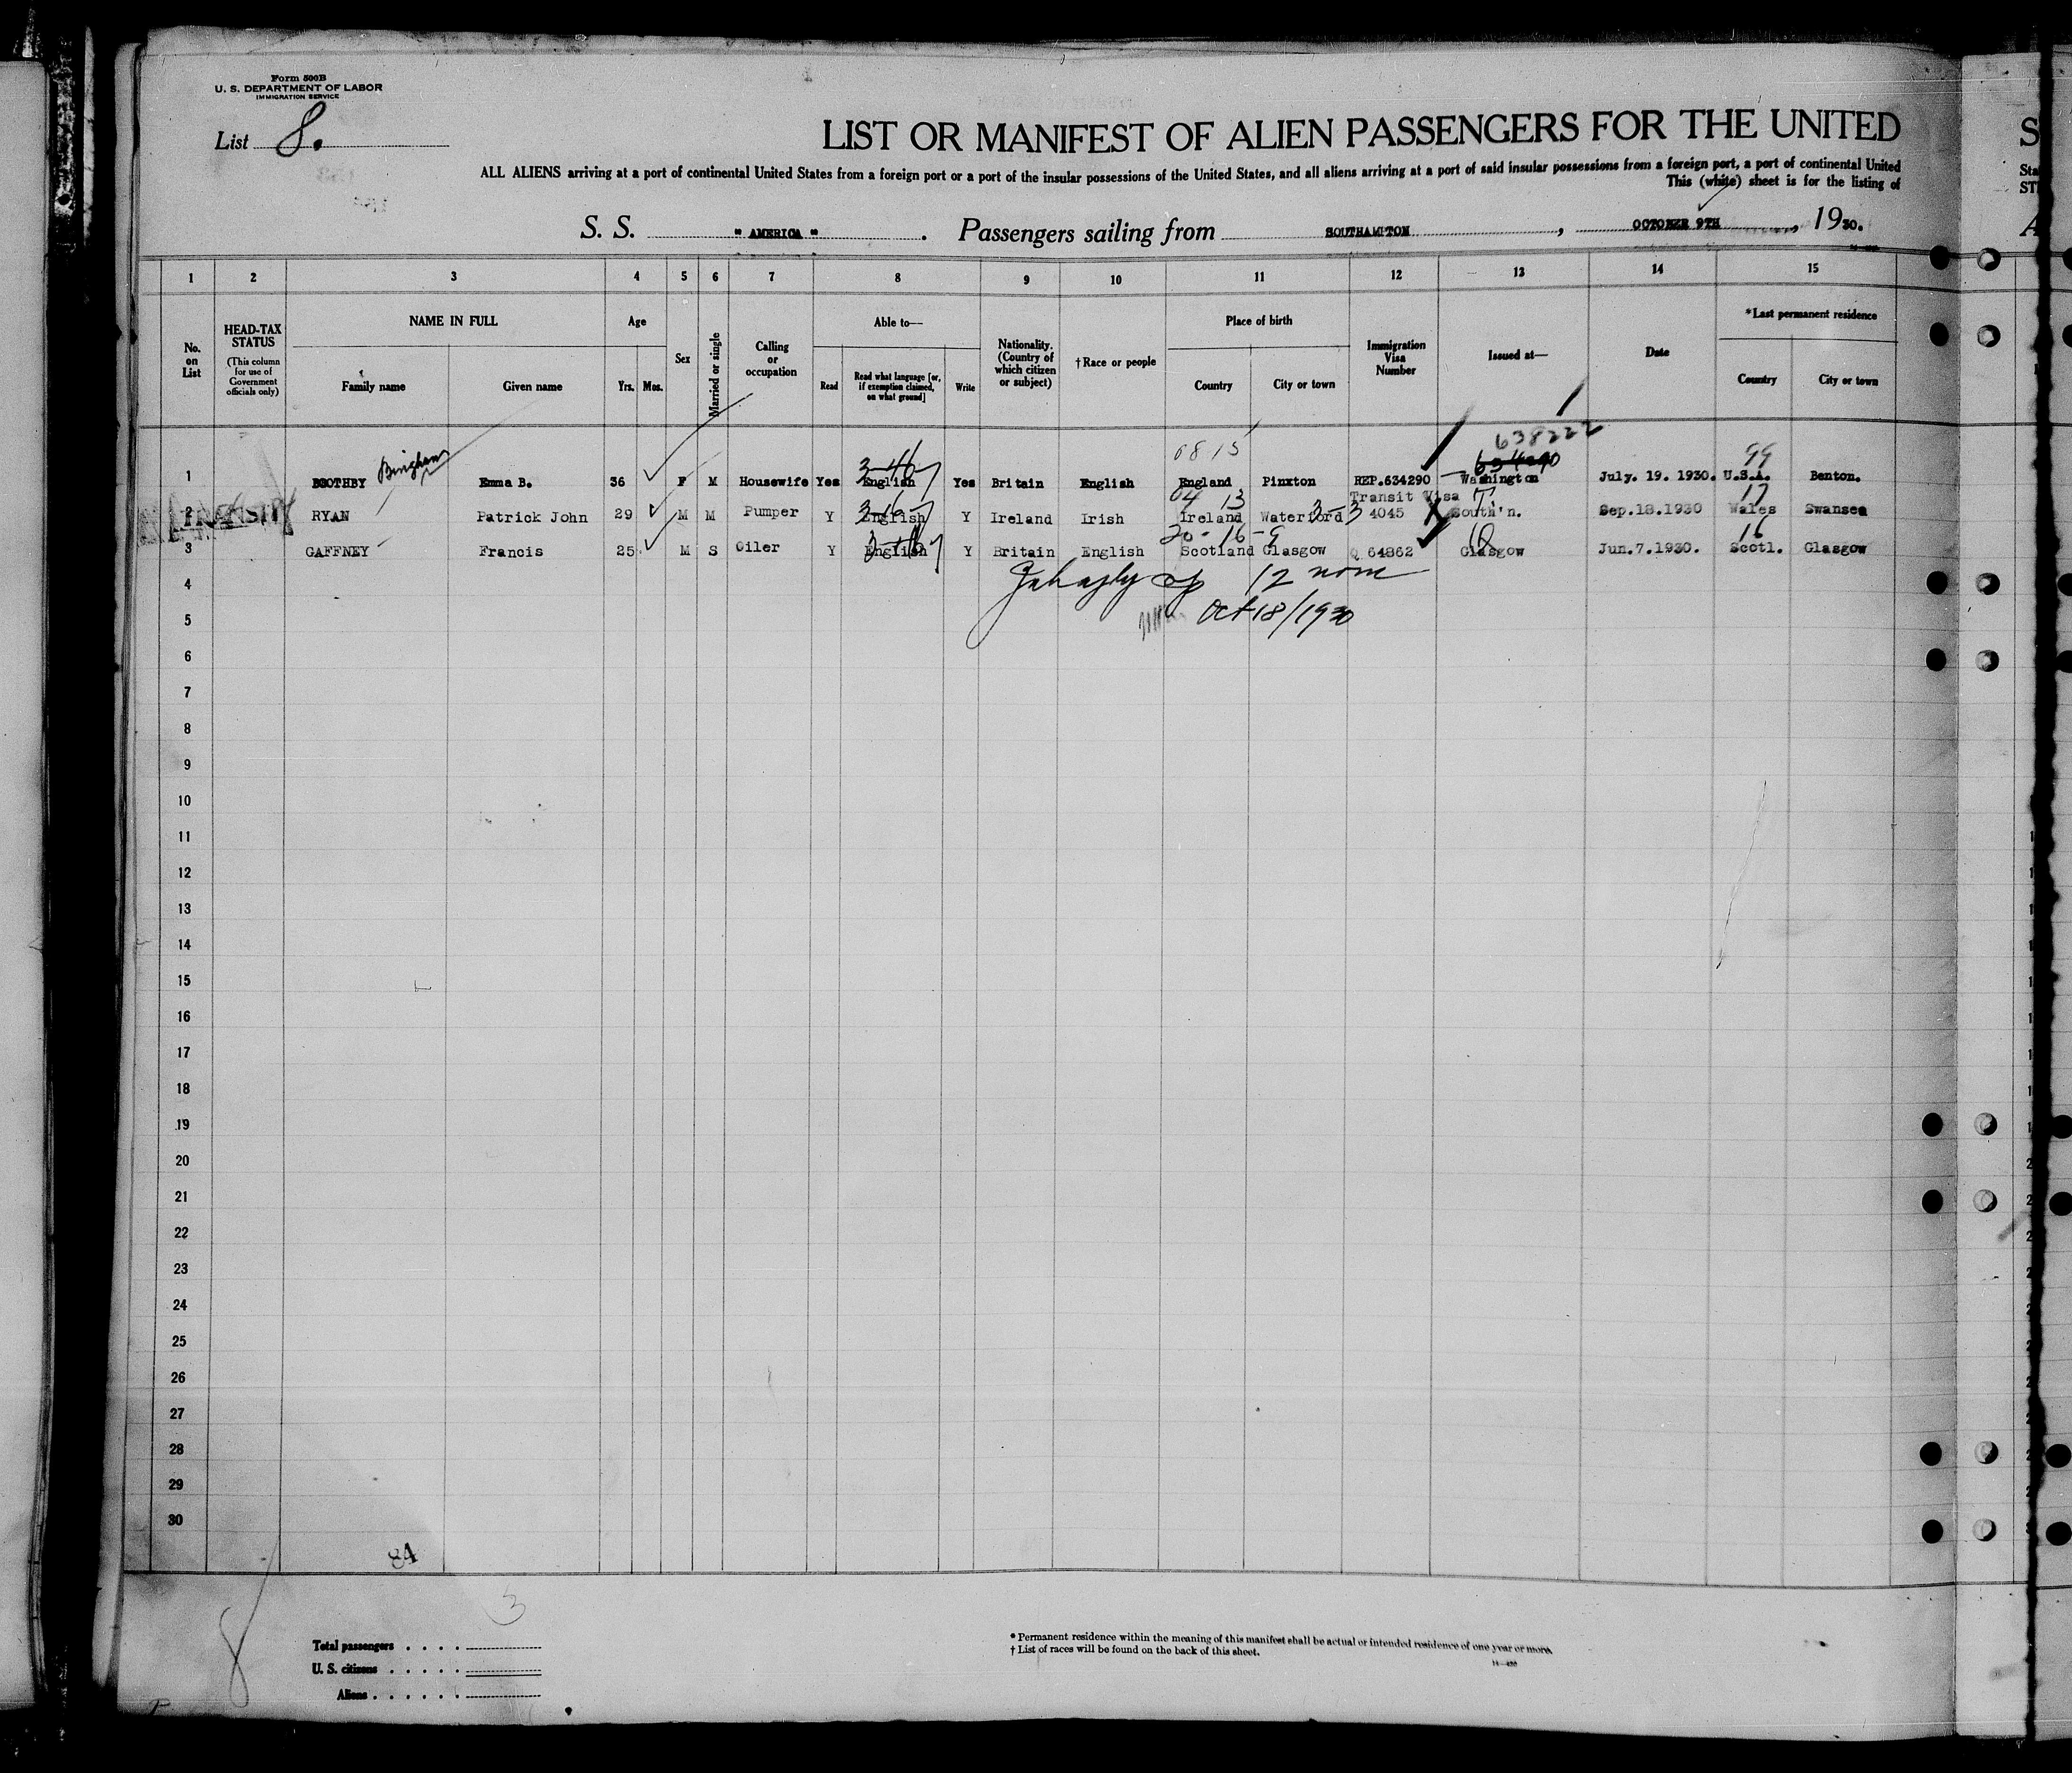 Form 500B
U. S. DEPARTMENT OF LABOR
IMMIGRATION SERVICE
List 8.
LIST OR MANIFEST OF ALIEN PASSENGERS FOR THE UNITED
ALL ALIENS arriving at a port of continental United States from a foreign port or a port of the insular possessions of the United States, and all aliens arriving at a port of said insular possessions from a foreign port, a port of continental United
This (white) sheet is for the listing of
S. S. " AMERICA " . Passengers sailing from SOUTHAMPTON , OCTOBER 9TH , 1930.
1 2 3 4 5 6 7 8 9 10 11 12 13 14 15
No. on List
HEAD-TAX STATUS (This column for use of Government officials only)
NAME IN FULL
Family name Given name
Age
Yrs. Mos.
Sex
Married or single
Calling or occupation
Able to—
Read
Read what language [or, if exemption claimed, on what ground]
Write
Nationality. (Country of which citizen or subject)
†Race or people
Place of birth
Country City or town
Immigration Visa Number
Issued at—
Date
*Last permanent residence
Country City or town
638222
0815
634290
99
1 BOOTHBY Bingham Emma B. 36 F M Housewife Yes English Yes Britain English England Pinxton REP.634290 Washington July. 19. 1930. U.S.A. Benton.
Transit Visa T.
04 13
17
TRANSIT
2 RYAN Patrick John 29 M M Pumper Y English Y Ireland Irish Ireland Waterford 4045 South'n. Sep.18.1930 Wales Swansea
20-16-9
16
3 GAFFNEY Francis 25 M S Oiler Y English Y Britain English Scotland Glasgow Q 64862 Glasgow Jun.7.1930. Scotl. Glasgow
4 12
5 Oct 18/1930
6
7
8
9
10
11
12
13
14
15
16
17
18
19
20
21
22
23
24
25
26
27
28
29
30
84
3
8
Total passengers . . . .
U. S. citizens . . . . .
Aliens . . . . . .
* Permanent residence within the meaning of this manifest shall be actual or intended residence of one year or more.
† List of races will be found on the back of this sheet.